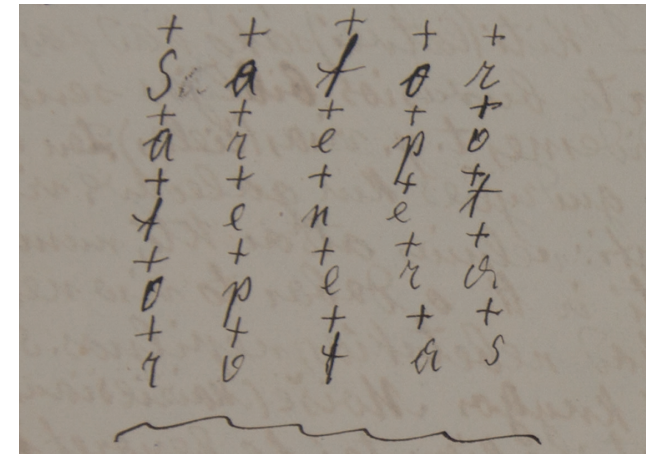 + + + + +
S a t o r
+ + +
a r e p o
+ + + + +
t e n e t
+ + + + +
o p e r a
+ + + + +
r o t a s